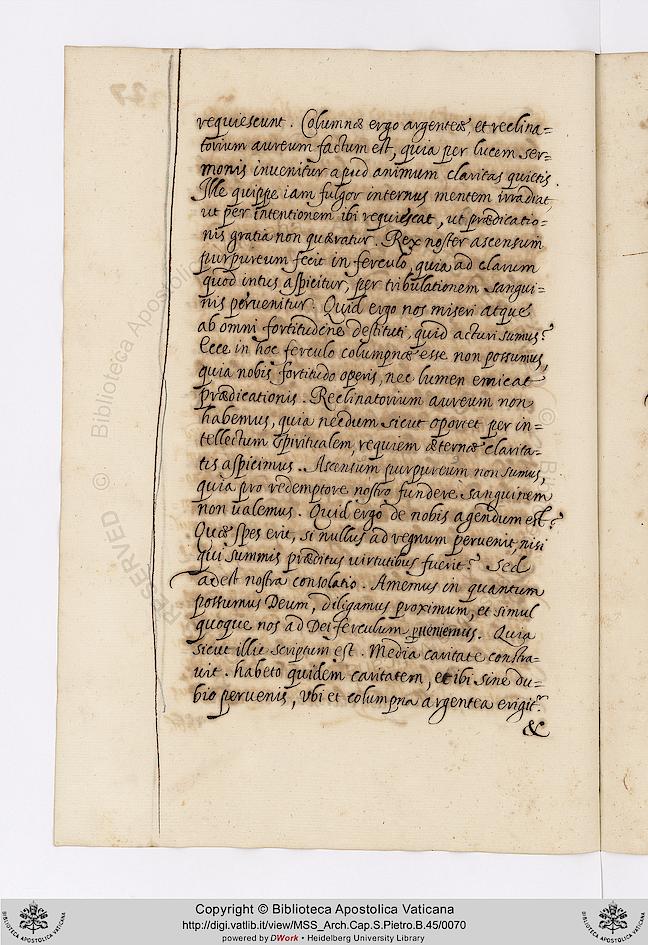 requiescunt. Columnæ ergo argenteæ, et reclina=
torium aureum factum est, quia per lucem ser=
monis invenitur apud animum claritas quietis.
Ille quippe iam fulgor internus mentem irradiat,
ut per intentionem ibi requiescat, ut prædicatio=
nis gratia non quæratur. Rex noster ascensum
purpureum fecit in ferculo, quia ad clarum
quod intus aspicitur, per tribulationem sangui=
nis peruenitur. Quid ergo nos miseri atque
ab omni fortitudine destituti, quid acturi sumus?
Ecce in hoc ferculo columpnæ esse non possumus,
quia nobis fortitudo operis, nec lumen emicat
prædicationis. Reclinatorium aureum non
habemus, quia necdum sicut oporet per in=
tellectum spiritualem, requiem æternæ clarita=
tis aspicimus. Ascensum purpureum non sumus,
quia pro redemptore nostro fundere sanguinem
non ualemus. Quid ergo de nobis agendum est?
Quæ spes erit, si nullus ad regnum peruenit, nisi
qui summis præditus uirtutibus fuerit? Sed
adest nostra consolatio. Amemus in quantum
possumus Deum, diligamus proximum, et simul
quoque nos ad Dei ferculum pueniemus. Quia
sicut illic scriptum est. Media caritate constra=
uit. habeto quidem caritatem, et ibi sine du=
bio peruenis, vbi et columpna argentea erigit.
&
27
RESERVED © Biblioteca Apostolica
© Bi
Copyright © Biblioteca Apostolica Vaticana
http://digi.vatlib.it/view/MSS_Arch.Cap.S.Pietro.B.45/0070
powered by DWork • Heidelberg University Library